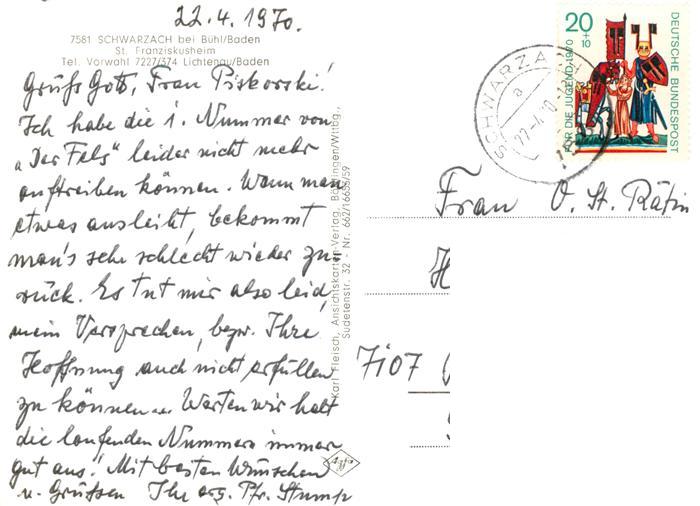 22.4.1970.
7581 SCHWARZACH bei Bühl/Baden
St. Franziskusheim
Tel. Vorwahl 7227/374 Lichtenau/Baden
Grüß Gott, Frau Piskorski!
Ich habe die 1. Nummer von
„Der Fels" leider nicht mehr
auftreiben können. Wenn man
etwas ausleiht, bekommt
man's sehr schlecht wieder zu-
rück. Es tut mir also leid,
mein Versprechen, bezw. Ihre
Hoffnung auch nicht erfüllen
zu können... Warten wir halt
die laufenden Nummern immer
gut aus! Mit besten Wünschen
u. Grüßen Ihr Pfr. Stumpf
Karl Fleisch, Ansichtskarten-Verlag, Böblingen/Württg.,
Sudetenstr. 32 - Nr. 662/16655/59
Agfa
20
+10
FÜR DIE JUGEND 1970
DEUTSCHE BUNDESPOST
SCHWARZACH
a
22.-4.70
Frau O. St. Rätin
H
7107